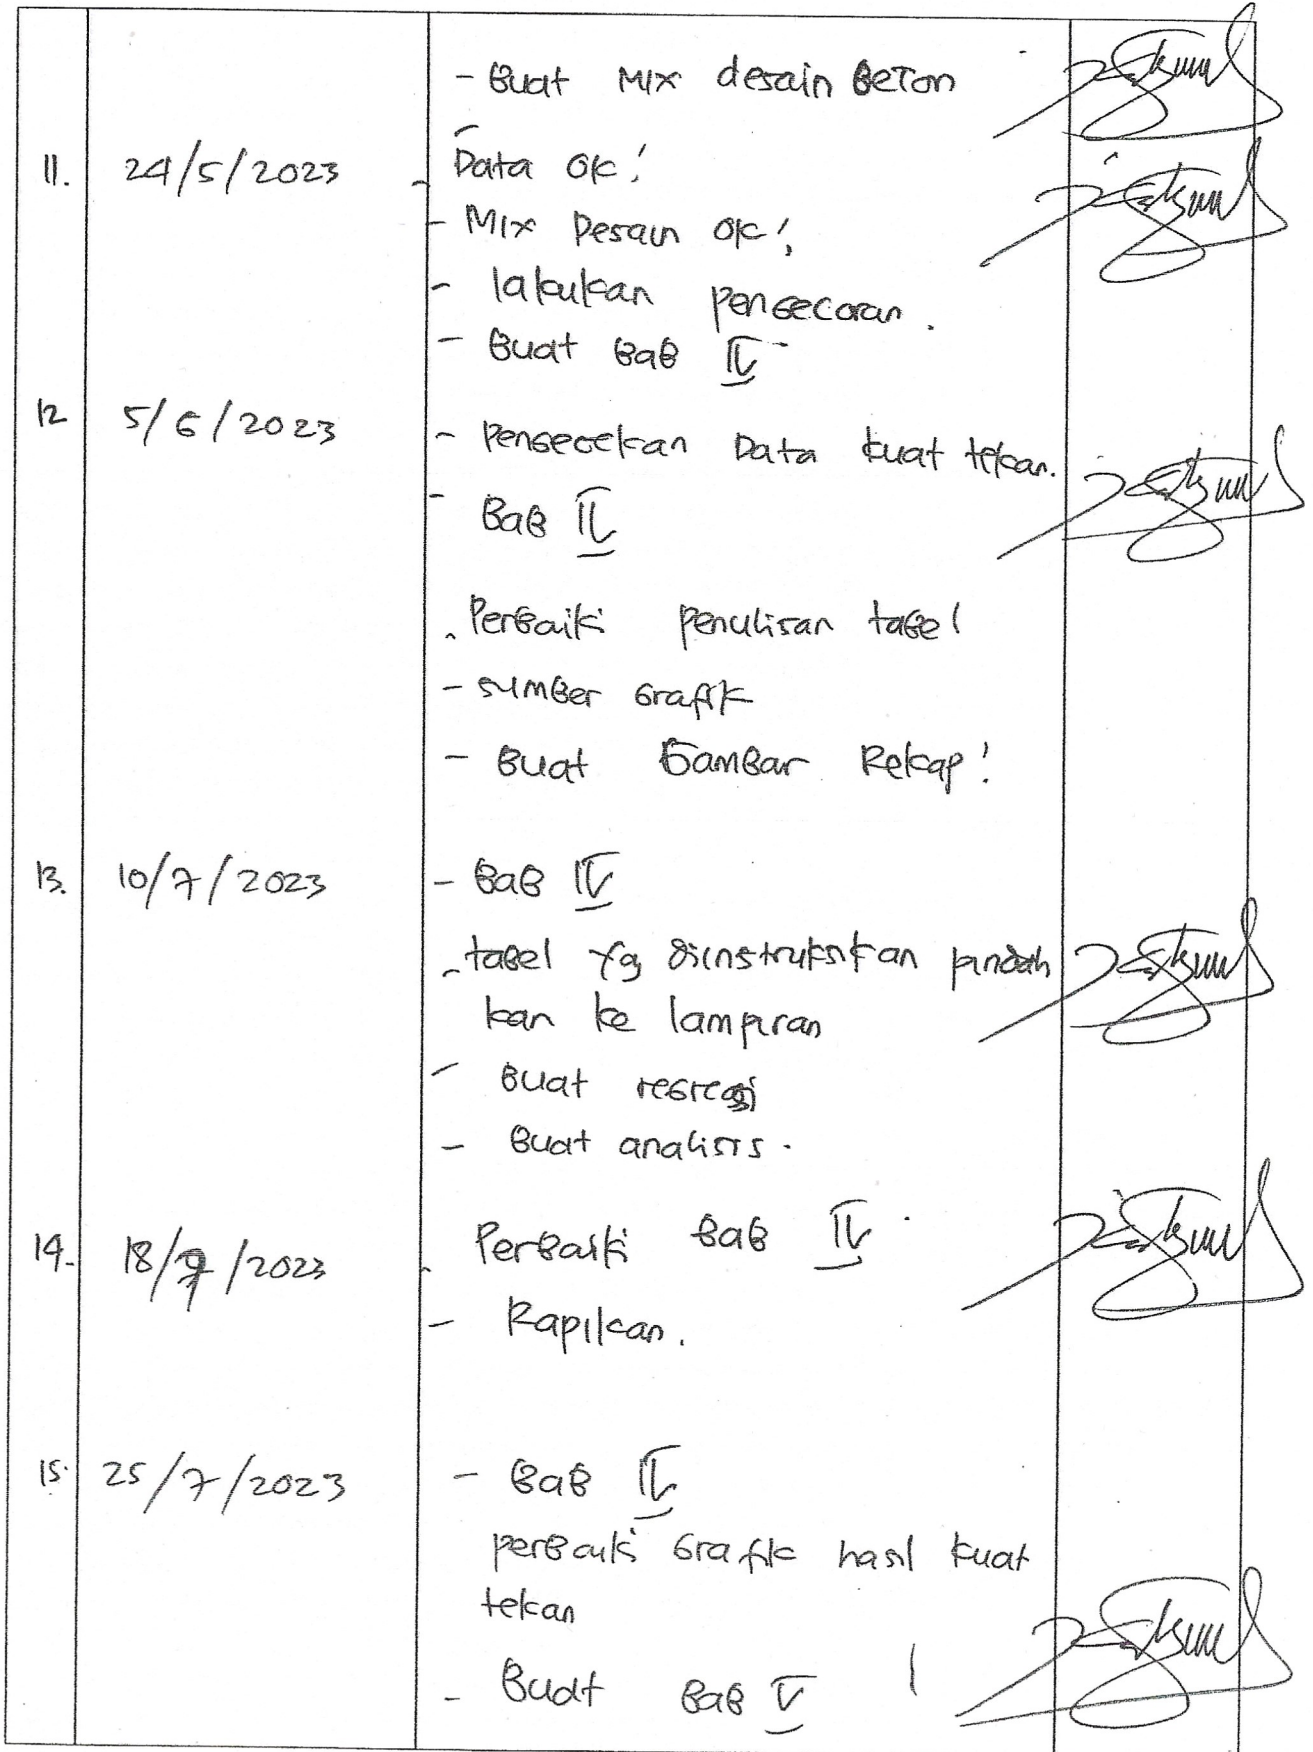 - Buat Mix desain Beton
11. 24/5/2023 - Data ok!
- Mix Desain ok!
- lakukan pengecoran.
- Buat Bab IV
12 5/6/2023 - Pengecekan Data kuat tekan.
- Bab IV
- Perbaiki penulisan tabel
- sumber Grafik
- Buat Gambar Rekap!
13. 10/7/2023 - Bab IV
- tabel yg diinstruksikan pindah
kan ke lampiran
- Buat regresi
- Buat analisis.
14. 18/7/2023 - Perbaiki Bab IV
- Rapikan.
15. 25/7/2023 - Bab IV
perbaiki Grafik hasil kuat
tekan
- Buat Bab V !